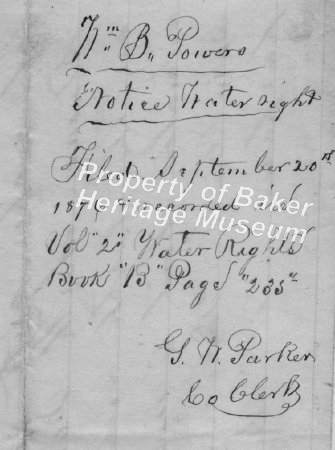 Wm B. Powers
Notice Water right
Filed September 20th
187 & recorded in
Vol "2" Water Rights
Book "B" Page "233"
G. W. Parker
Co Clerk
Property of Baker
Heritage Museum